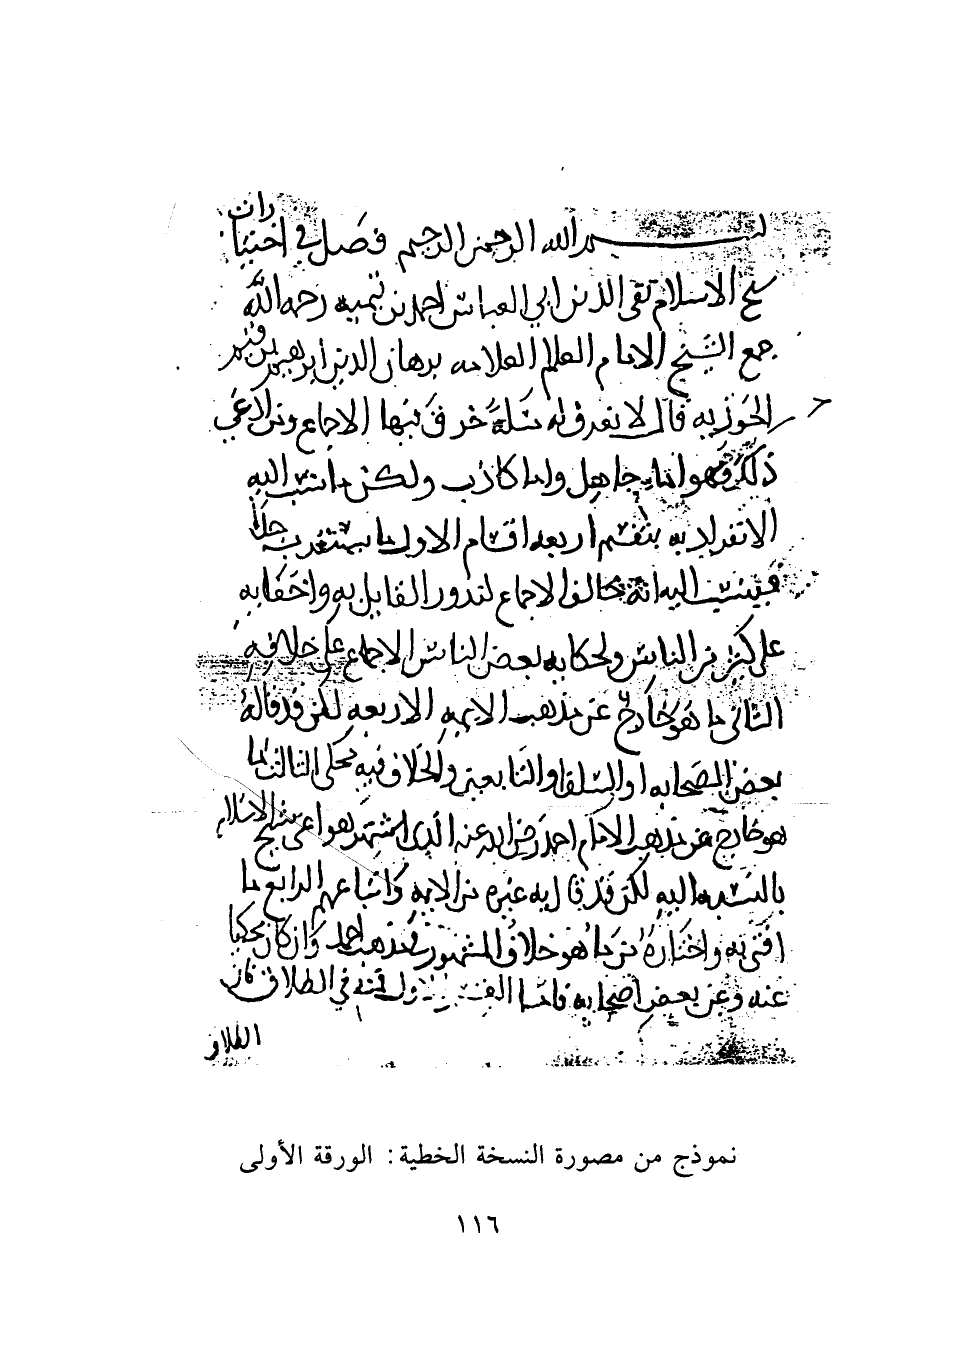 بسم الله الرحمن الرحيم فصل في اختيارات
شيخ الاسلام تقي الدين ابي العباس احمد بن تيميه رحمه الله
جمع الشيخ الامام العالم العلامه برهان الدين ابرهيم بن قيم
الجوزيه قال لا نعرف له مسئلة خرق فيها الاجماع ومن ادعى
ذلك فهو اما جاهل واما كاذب ولكن ما نسب اليه
الانفراد به ينقسم اربعه اقسام الاول ما يستغرب جدا
فينسب اليه انه خالف الاجماع لندور القايل به واخفايه
على كثير من الناس ولحكايه بعض الناس الاجماع على خلافه
الثاني ما هو خارج عن مذهب الايمه الاربعه لكن قد قاله
بعض الصحابه او السلف او التابعين والخلاف فيه محكي الثالث ما
هو خارج عن مذهب الامام احمد رضي الله عنه الذي اشتهر هو اعني شيخ الاسلام
بالنسبه اليه لكن قد قال به غيره من الايمه واتباعهم الرابع ما
افتى به واختاره مما هو خلاف المشهور في مذهب احمد وان كان محكيا
عنه وعن بعض اصحابه فاما القسم الاول فمنه في الطلاق
الطلاق
نموذج من مصورة النسخة الخطية: الورقة الأولى
١١٦